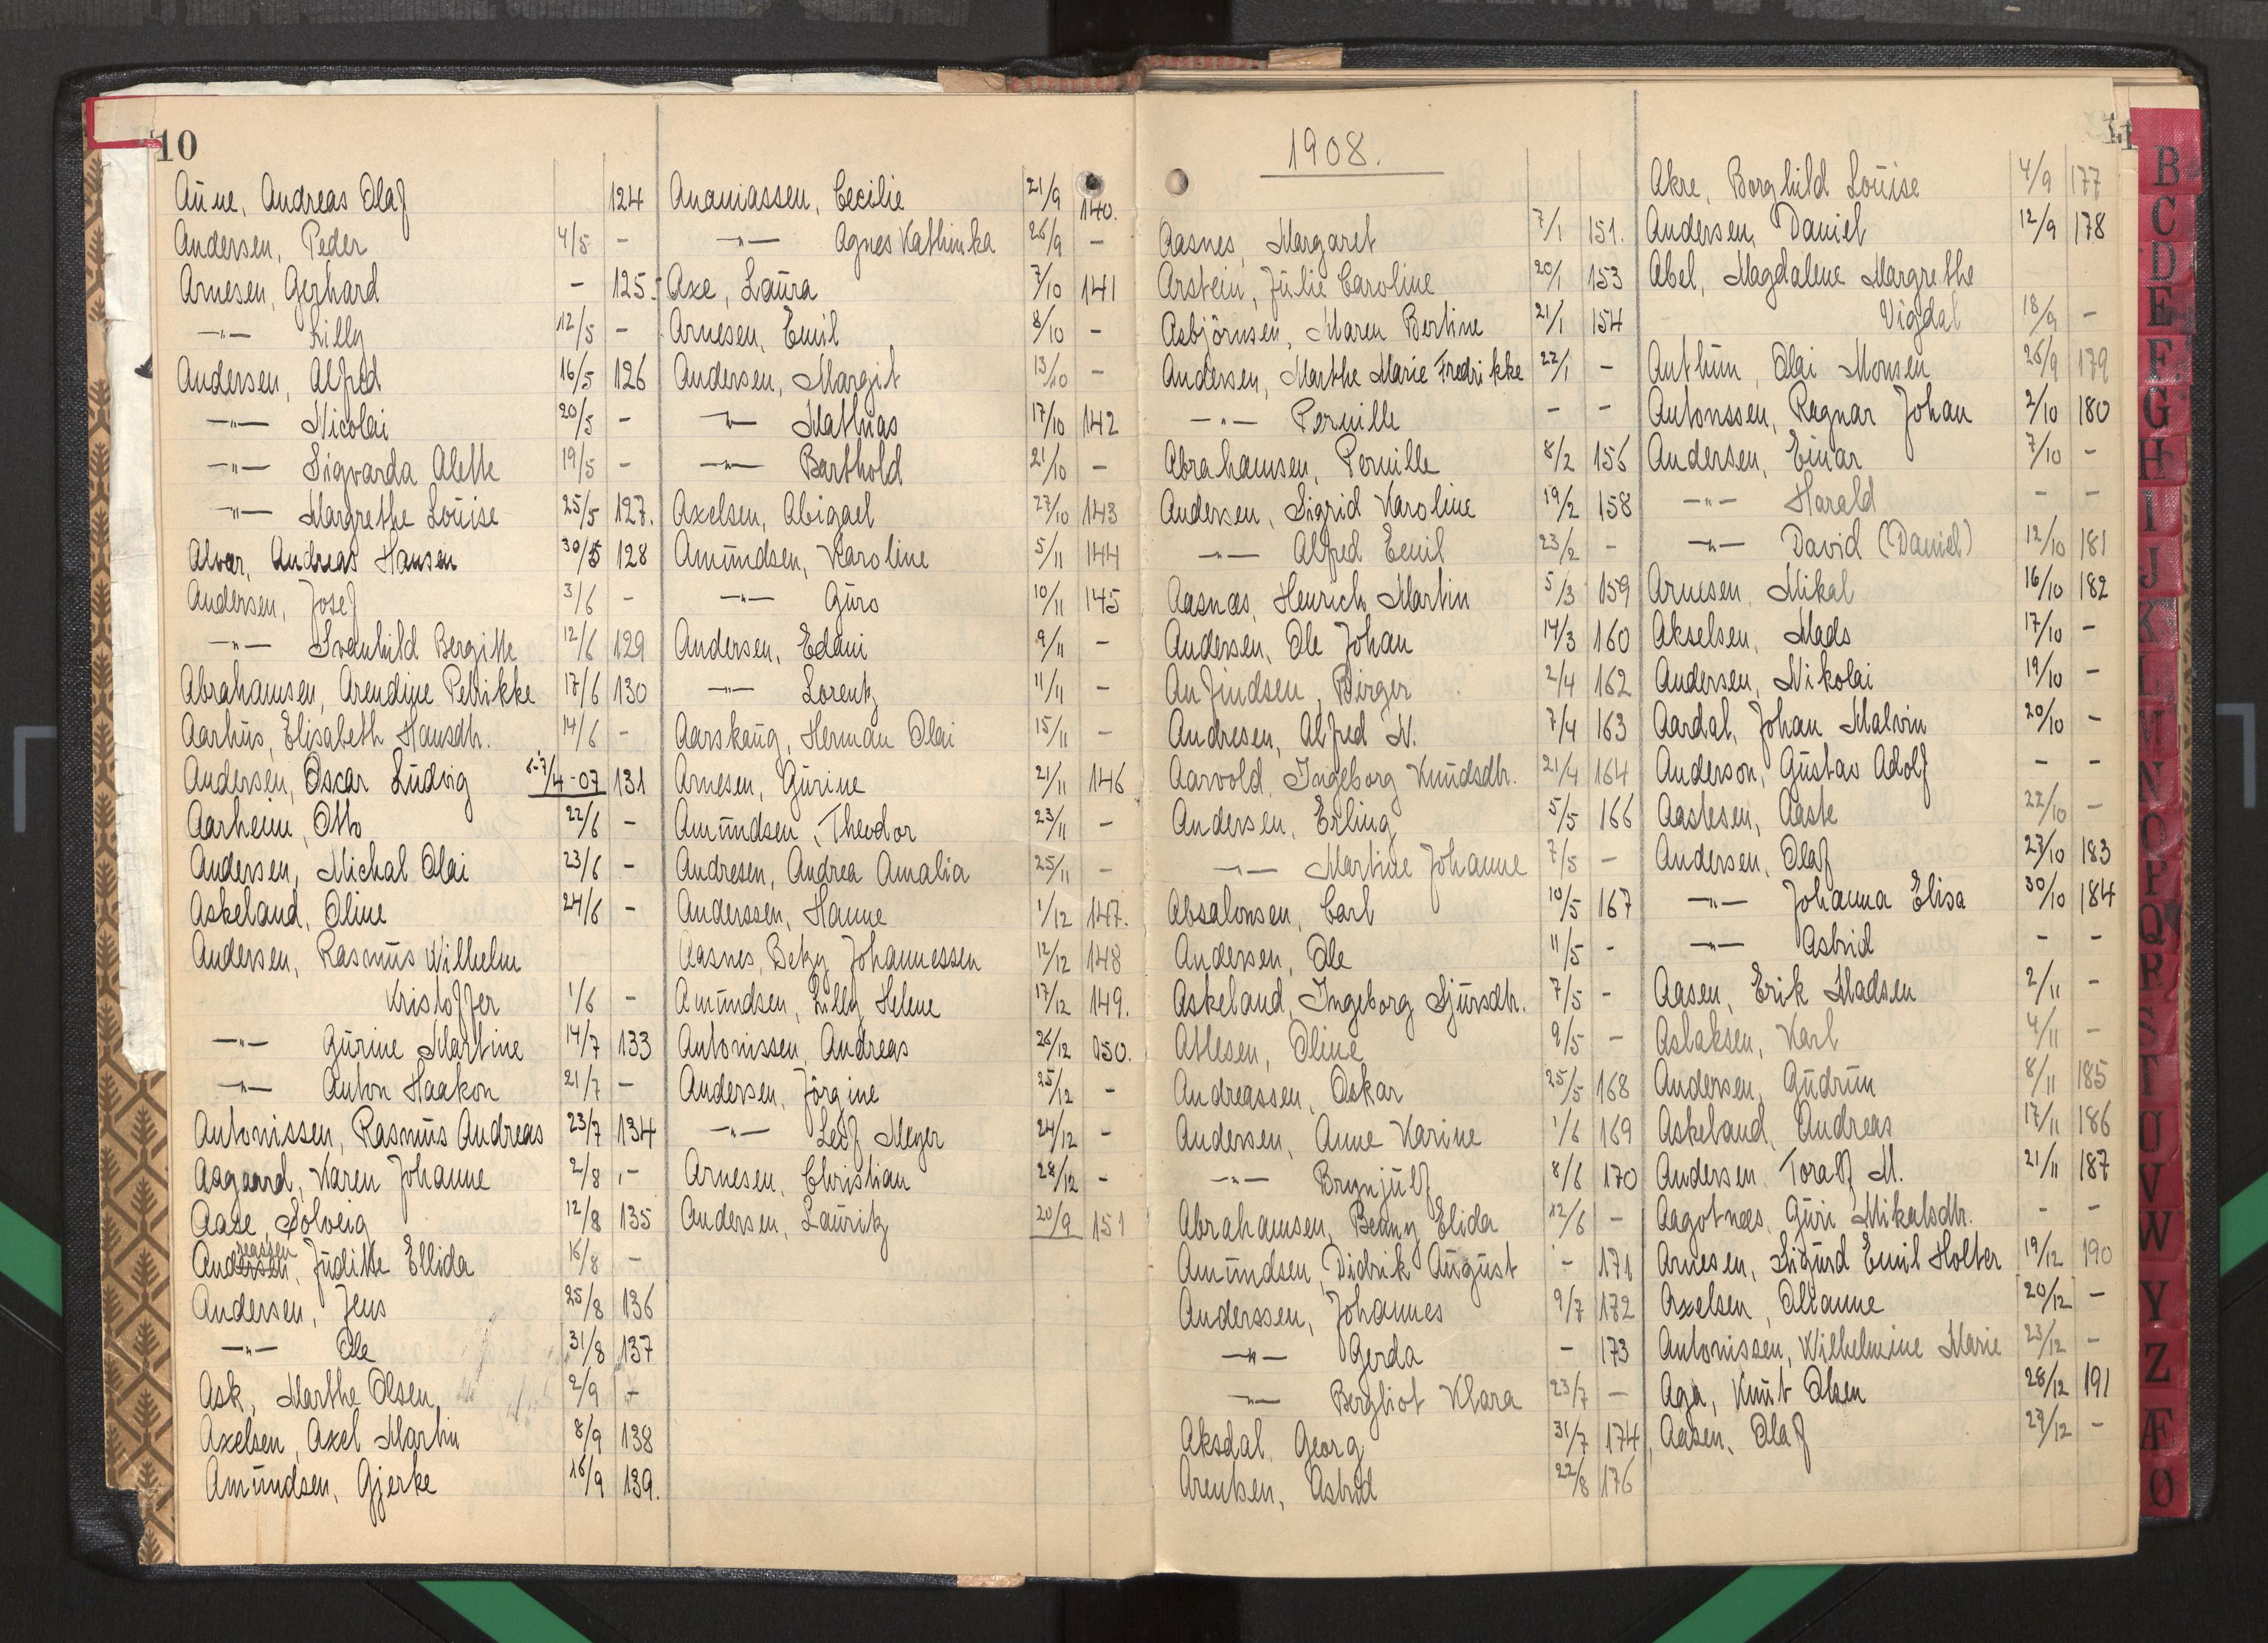 10
Aune, Andreas Olaf 124
Andersen, Peder 4/5 -
Arnesen, Gerhard - 125
-"- Lilly 12/5 -
Andersen, Alfred 16/5 126
-"- Nicolai 20/5 -
-"- Sigvarda Alette 19/5 -
-"- Margrethe Louise 25/5 127.
Alver, Andreas Hansen 30/5 128
Andersen, Josef 3/6 -
-"- Svanhild Bergitte 12/6 129
Abrahamsen, Arendine Petrikke 17/6 130
Aarhus, Elisabeth Hansdtr. 14/6 -
Andersen, Oscar Ludvig 6-7/4-07 131
Aarheim, Otto 22/6 -
Andersen, Michal Olai 23/6 -
Askeland, Oline 24/6 -
Andersen, Rasmus Wilhelm
Kristoffer 1/6 -
-"- Gurine Martine 14/7 133
-"- Anton Haakon 21/7 -
Antonissen, Rasmus Andreas 23/7 134
Aagaard, Karen Johanne 2/8 -
Aase, Solveig 12/8 135
reassen
Andersen, Judithe Ellida 16/8 -
Andersen, Jens 25/8 136
-"- Ole 31/8 137
Ask, Marthe Olsen 2/9 -
Axelsen, Axel Martin 8/9 138
Amundsen, Gjerke 16/9 139.
Ananiassen, Cecilie 21/9 140.
-"- Agnes Kathinka 26/9 -
Axe, Laura 7/10 141
Arnesen, Emil 8/10 -
Andersen, Margit 13/10 -
-"- Mathias 17/10 142
-"- Barthold 21/10 -
Axelsen, Abigael 27/10 143
Amundsen, Karoline 5/11 144
-"- Guro 10/11 145
Andersen, Edani 9/11 -
-"- Lorentz 11/11 -
Aarskaug, Herman Olai 15/11 -
Arnesen, Gurine 21/11 146
Amundsen, Theodor 23/11 -
Andresen, Andrea Amalia 25/11 -
Anderssen, Hanne 1/12 147.
Aasnes, Betzy Johannessen 12/12 148
Amundsen, Lilly Helene 17/12 149.
Antonissen, Andreas 26/12 150.
Andersen, Jörgine 25/12 -
-"- Leif Meyer 24/12 -
Arnesen, Christian 28/12 -
Andersen, Lauritz 20/9 151
1908.
11
Aasnes, Margaret 7/1 151.
Arstein, Julie Caroline 20/1 153
Asbjörnsen, Maren Bertine 21/1 154
Andersen, Marthe Marie Fredrikke 22/1 -
-"- Pernille - -
Abrahamsen, Pernille 8/2 156
Andersen, Sigrid Karoline 19/2 158
-"- Alfred Emil 23/2 -
Aasnæs, Henrich Martin 5/3 159
Andersen, Ole Johan 14/3 160
Anfindsen, Birger 2/4 162
Andresen, Alfred N. 7/4 163
Aarvold, Ingeborg Knudsdtr. 21/4 164
Andersen, Erling 5/5 166
-"- Martine Johanne 7/5 -
Absalonsen, Carl 10/5 167
Andersen, Ole 11/5 -
Askeland, Ingeborg Sjursdtr. 7/5 -
Atlesen, Oline 9/5 -
Andreassen, Oskar 25/5 168
Andersen, Anne Karine 1/6 169
-"- Brynjulf 8/6 170
Abrahamsen, Benny Elida 12/6 -
Amundsen, Didrik August - 171
Anderssen, Johannes 9/7 172
-"- Gerda - 173
-"- Bergliot Klara 23/7 -
Aksdal, Georg 31/7 174
Arentsen, Astrid 22/8 176
Akre, Borghild Louise 4/9 177
Andersen, Daniel 12/9 178
Abel, Magdalene Margrethe
Vigdal 18/9 -
Anthun, Olai Monsen 26/9 179
Antonssen, Ragnar Johan 2/10 180
Andersen, Einar 7/10 -
-"- Harald - -
-"- David (Daniel) 12/10 181
Arnesen, Mikal 16/10 182
Akselsen, Mads 17/10 -
Andersen, Nikolai 19/10 -
Aardal, Johan Malvin 20/10 -
Anderson, Gustav Adolf - -
Aastesen, Aaste 22/10 -
Andersen, Olaf 27/10 183
-"- Johanna Elisa 30/10 184
-"- Astrid - -
Aasen, Erik Madsen 2/11 -
Aslaksen, Karl 4/11 -
Andersen, Gudrun 8/11 185
Askeland, Andreas 17/11 186
Andersen, Toralf M. 21/11 187
Aagotnæs, Guri Mikalsdtr. - -
Arnesen, Sigurd Emil Holter 19/12 190
Axelsen, Alianne 20/12 -
Antonissen, Wilhelmine Marie 23/12 -
Aga, Knut Olsen 28/12 191
Aasen, Olaf 29/12 -
B
C
D
E
F
G
H
I
J
K
L
M
N
O
P
Q
R
S
T
U
V
W
Y
Z
Æ
Ø